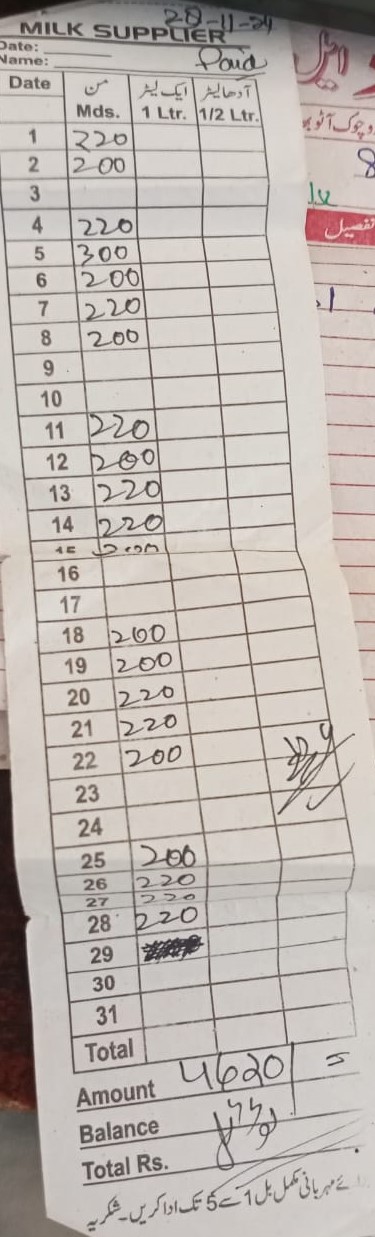 28-11-24
MILK SUPPLIER
Date:
Name: Paid
Date من ایک لیٹر آدھا لیٹر
Mds. 1 Ltr. 1/2 Ltr.
1 220
2 200
3
4 220
5 300
6 200
7 220
8 200
9
10
11 220
12 200
13 220
14 220
15 200
16
17
18 200
19 200
20 220
21 220
22 200
23
24
25 200
26 220
27 220
28 220
29
30
31
Total
Amount 4620/=
Balance
Total Rs.
برائے مہربانی مکمل بل 1 سے 5 تک ادا کریں۔ شکریہ
تفصیل